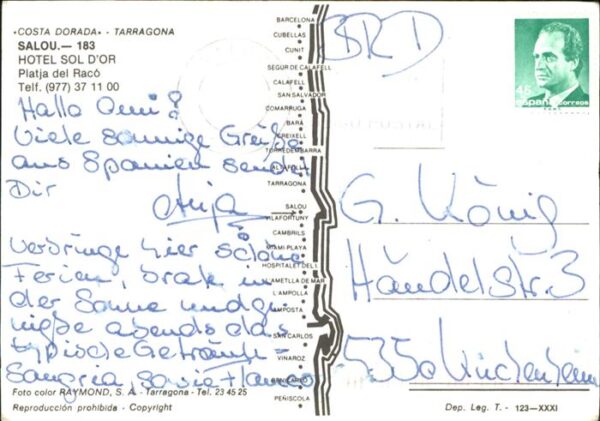 «COSTA DORADA» - TARRAGONA
SALOU.— 183
HOTEL SOL D'OR
Platja del Racò
Telf. (977) 37 11 00
Hallo Omi!
Viele sonnige Grüße
aus Spanien sendet
Dir
Anja
Verbringe hier schöne
Ferien, brate in
der Sonne und ge-
nieße abends das
typische Getränk-
Sangria, sowie Flamenco
Foto color RAYMOND, S. A. - Tarragona - Tel. 23 45 25
Reproducción prohibida - Copyright
BARCELONA
CUBELLAS
CUNIT
SEGUR DE CALAFELL
CALAFELL
SAN SALVADOR
COMARRUGA
BARÁ
CREIXELL
TORREDEMBARRA
ALTAFULLA
TARRAGONA
SALOU
VILAFORTUNY
CAMBRILS
MIAMI PLAYA
HOSPITALET DEL I.
L'AMETLLA DE MAR
L'AMPOLLA
AMPOSTA
SAN CARLOS
VINAROZ
BENICARLO
PEÑISCOLA
BRD
45
españa correos
POSTAL
G. König
Händelstr. 3
5350
Dep. Leg. T. - 123—XXXI